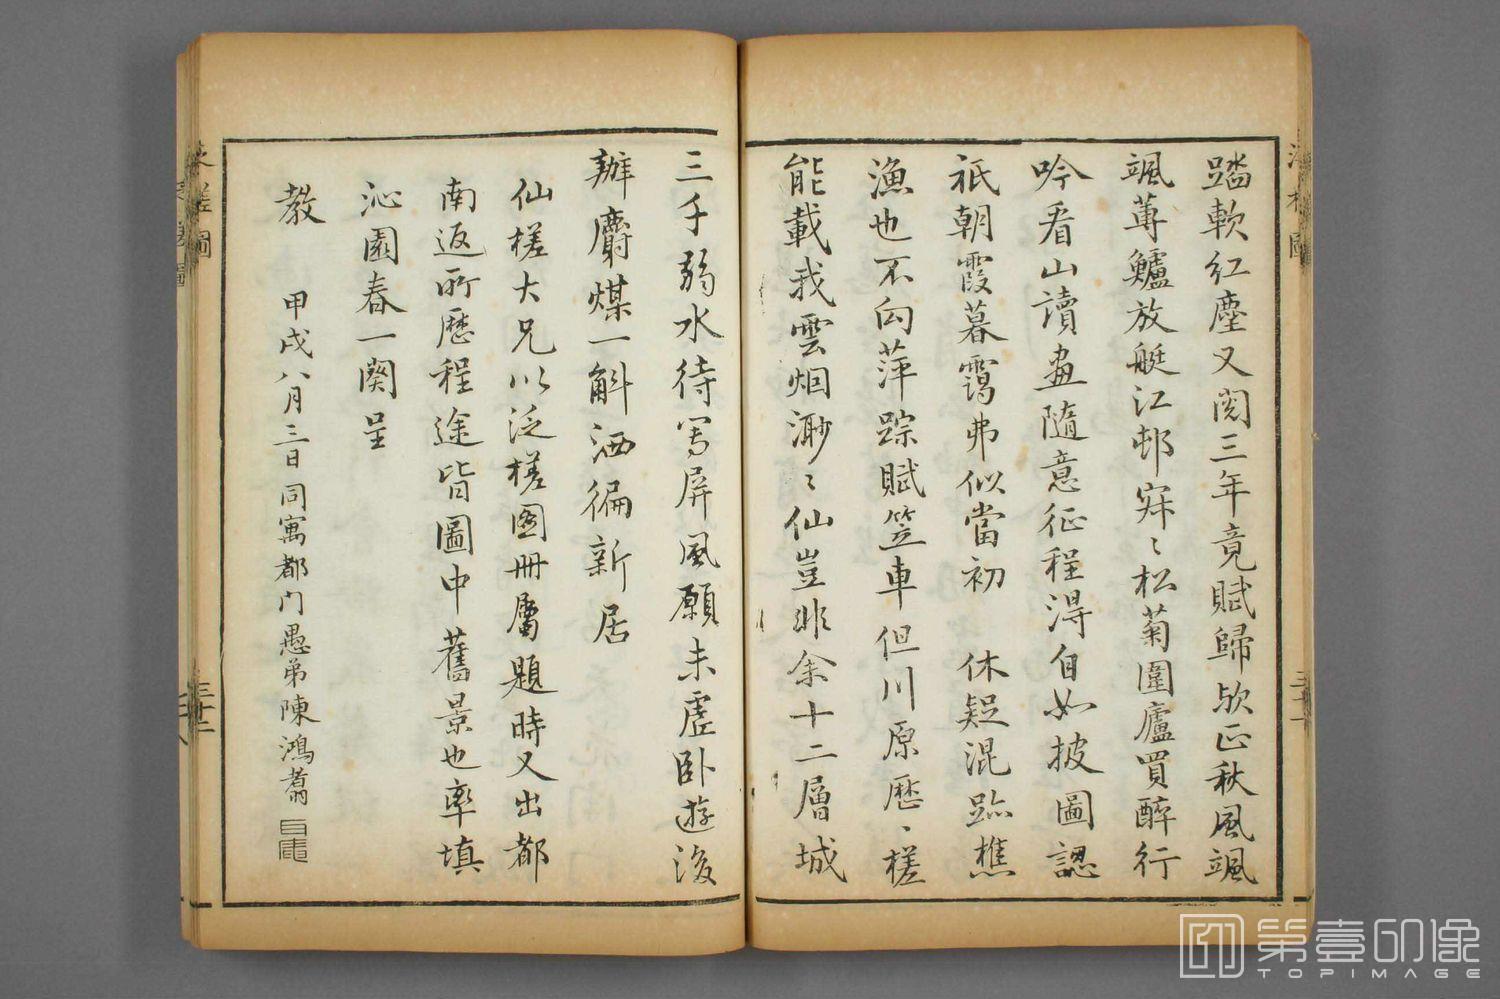 踏軟紅塵又閱三年竟賦歸欤正秋風颯
颯蓴鱸放艇江邨寂〻松菊圍廬買醉行
吟看山讀畫隨意征程淂自如披圖認
祇朝霞暮靄弗似當初　休疑混跡樵
漁也不向萍踪賦笠車但川原歷〻槎
能載我雲烟渺〻仙豈非余十二層城
三千弱水待寫屏風願未虛卧遊後
辦麝煤一斛洒徧新居
仙槎大兄以泛槎圖冊屬題時又出都
南返所歷程途皆圖中舊景也率填
沁園春一闋呈
教　甲戌八月三日同寓都門愚弟陳鴻翥
第壹印像
TOPIMAGE